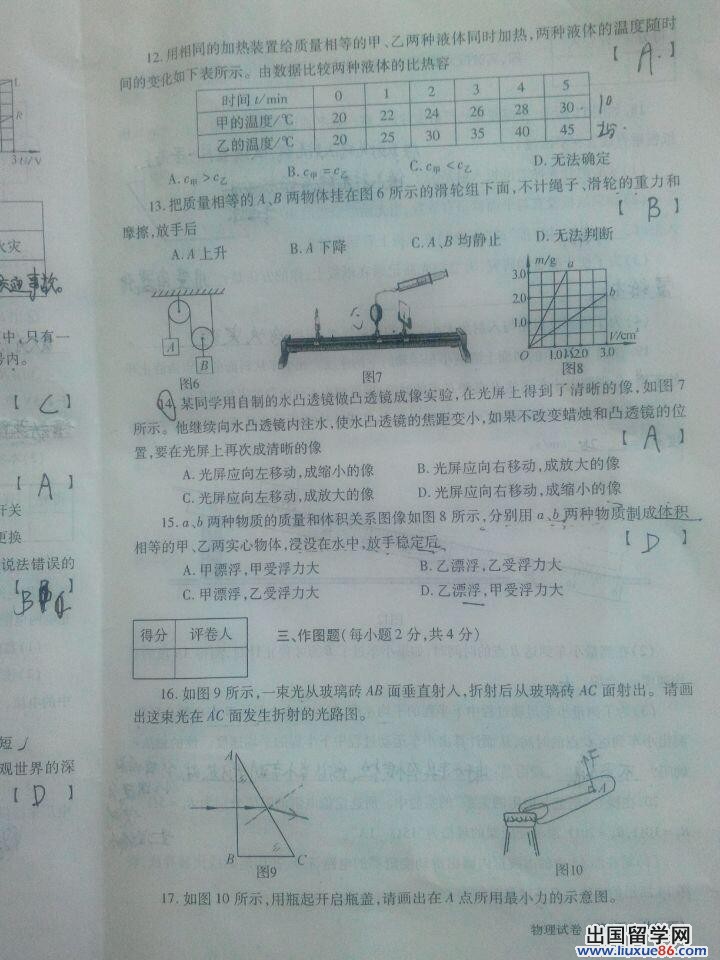 12.用相同的加热装置给质量相等的甲、乙两种液体同时加热,两种液体的温度随时
间的变化如下表所示。由数据比较两种液体的比热容 【 A. 】
时间 t/min 0 1 2 3 4 5
甲的温度/℃ 20 22 24 26 28 30 10
乙的温度/℃ 20 25 30 35 40 45 25
A.c甲>c乙 B.c甲=c乙 C.c甲<c乙 D.无法确定
13.把质量相等的A、B两物体挂在图6所示的滑轮组下面,不计绳子、滑轮的重力和
摩擦,放手后 【 B 】
A.A上升 B.A下降 C.A、B均静止 D.无法判断
A B
图6
图7
m/g a b
3.0
2.0
1.0
O 1.0 2.0 3.0 V/cm³
图8
14.某同学用自制的水凸透镜做凸透镜成像实验,在光屏上得到了清晰的像,如图7
所示。他继续向水凸透镜内注水,使水凸透镜的焦距变小,如果不改变蜡烛和凸透镜的位
置,要在光屏上再次成清晰的像 【 A 】
A.光屏应向左移动,成缩小的像 B.光屏应向右移动,成放大的像
C.光屏应向左移动,成放大的像 D.光屏应向右移动,成缩小的像
15.a、b两种物质的质量和体积关系图像如图8所示,分别用a、b两种物质制成体积
相等的甲、乙两实心物体,浸没在水中,放手稳定后 【 D 】
A.甲漂浮,甲受浮力大 B.乙漂浮,乙受浮力大
C.甲漂浮,乙受浮力大 D.乙漂浮,甲受浮力大
得分 评卷人
三、作图题(每小题2分,共4分)
16.如图9所示,一束光从玻璃砖AB面垂直射人,折射后从玻璃砖AC面射出。请画
出这束光在AC面发生折射的光路图。
A
B C
图9
F
A
图10
17.如图10所示,用瓶起开启瓶盖,请画出在A点所用最小力的示意图。
物理试卷
L
R
3 U/V
火灾
中,只有一
号内。
【 C 】
【 A 】
开关
更换
说法错误的
短
观世界的深
【 D 】
出国留学网
www.liuxue86.com